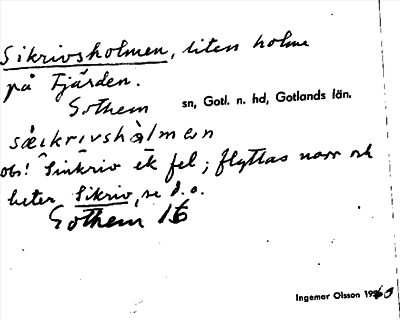 Sikrivsholmen, liten holme
på Fjärden.
Gothem sn, Gotl. n. hd, Gotlands län.
sæikrivshålman
obs! Sinkriv ek fel; flyttas norr och
heter Sikriv, se d.o.
Gothem 16
Ingemar Olsson 1960